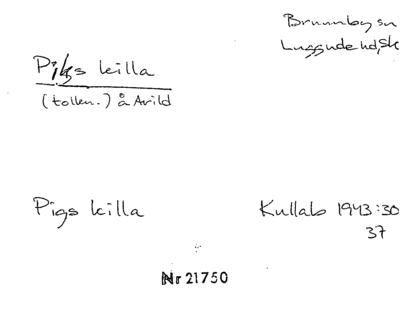 Brunnby sn
Luggude hd, Sk
Pigs killa
(tolkn.) å Arild
Pigs killa
Kullab 1943:30
37
Nr 21750